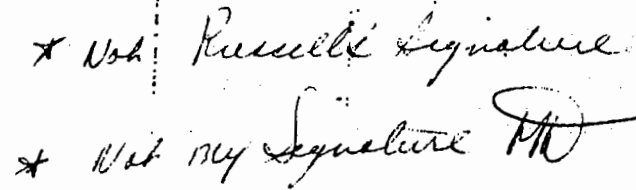 * Not Russell's Signature
* Not my Signature MN